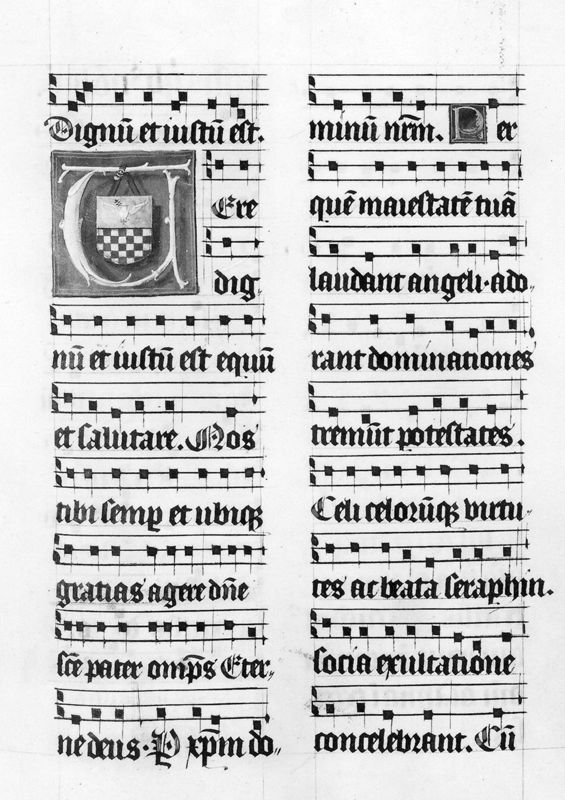 Dignũ et iustũ est.
Vere
dig-
nũ et iustũ est equũ
et salutare. Nos
tibi semꝑ et ubiqꝫ
gratias agere dñe
scē pater omp̄s Eter-
ne deus· P xp̄m do-
minũ nr̄m. Per
quē maiestatē tuã
laudant angeli·ado-
rant dominationes
tremũt potestates.
Celi celorũqꝫ virtu-
tes ac beata seraphin.
socia exultatione
concelebrant. Cũ